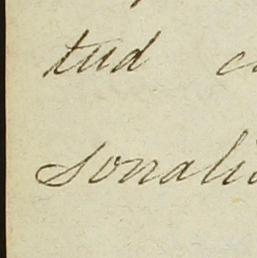 tud c
sonali